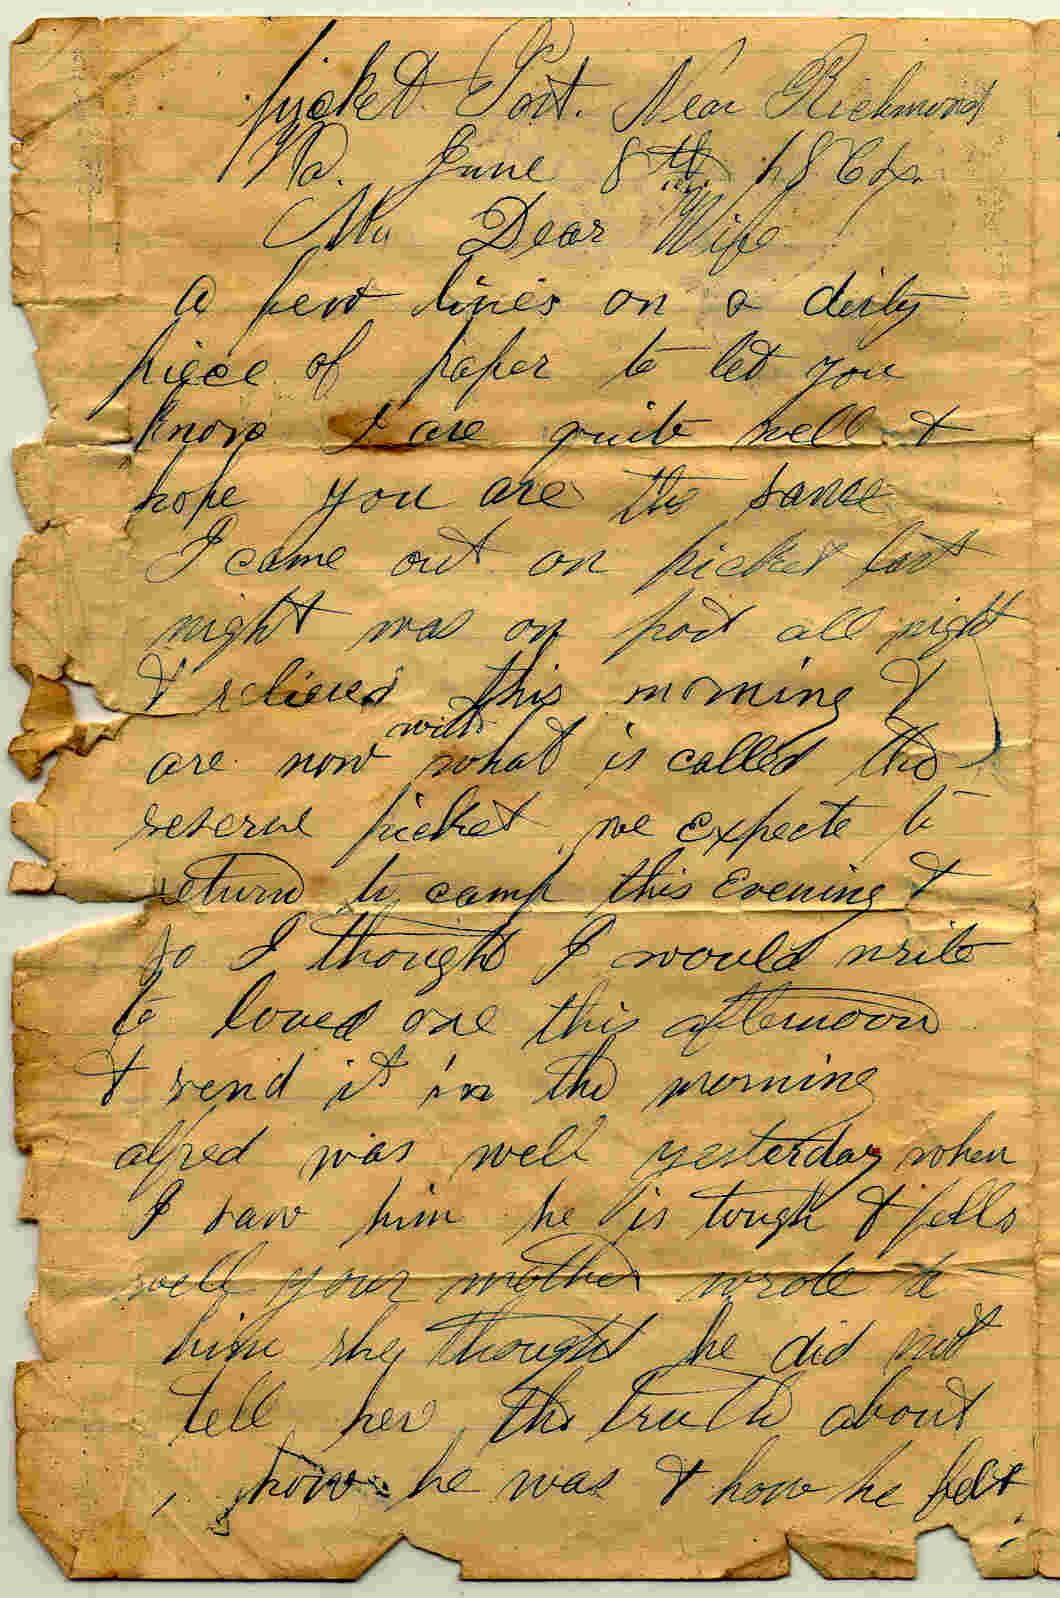 picket Post. Near Richmond
Va. June 8th 186
My Dear Wife
a few lines on a dirty
piece of paper to let you
know I are quite well &
hope you are the same
I came out on picket last
night was on post all night
& relieved this morning &
are now with what is called the
reserve picket we Expecte to
return to camp this Evening &
so I thought I would write
to loved one this afternoon
& send it in the morning
alfred was well yesterday when
I saw him he is tough & fells
well your mother wrote to
him she thought he did not
tell her the truth about
how he was & how he felt